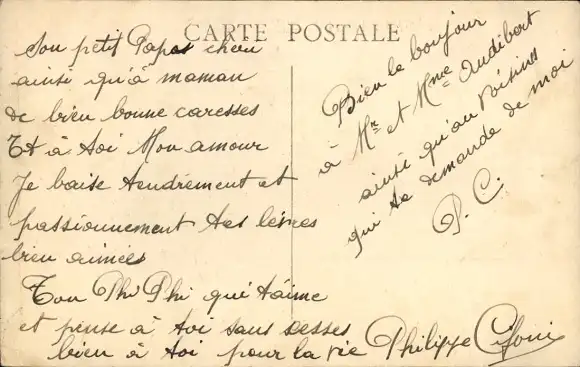 CARTE POSTALE
Son petit Papas cheri
ainsi qu'à maman
de bien bonne caresses
Et à toi Mon amour
Je baise tendrement et
passionnement tes lèvres
bien aimées
Ton Phi Phi qui t'aime
et pense à toi sans cesses
bien à toi pour la vie Philippe
Bien le bonjour
à Mr et Mme Audibert
ainsi qu'au voisins
qui te demande de moi
P. C.